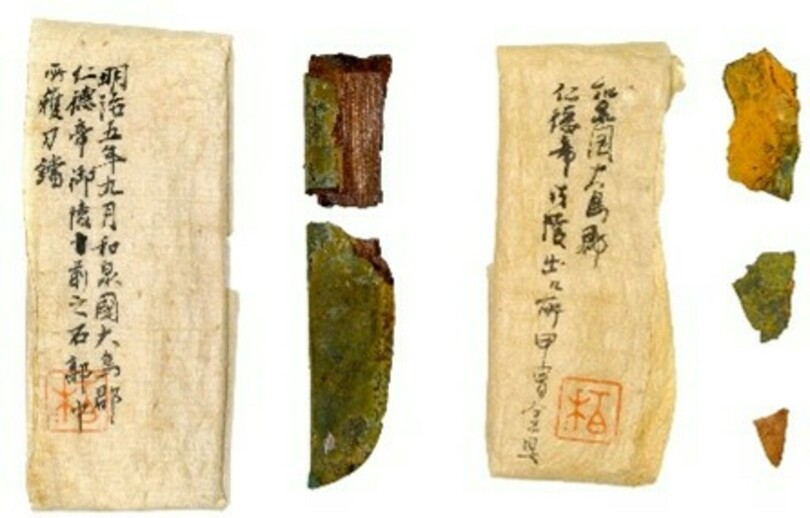 明治五年九月和泉國大鳥郡
仁德帝御陵前之石郭中
所獲刀鐺
和泉国大鳥郡
仁徳帝御陵出ル所甲冑金具
栢